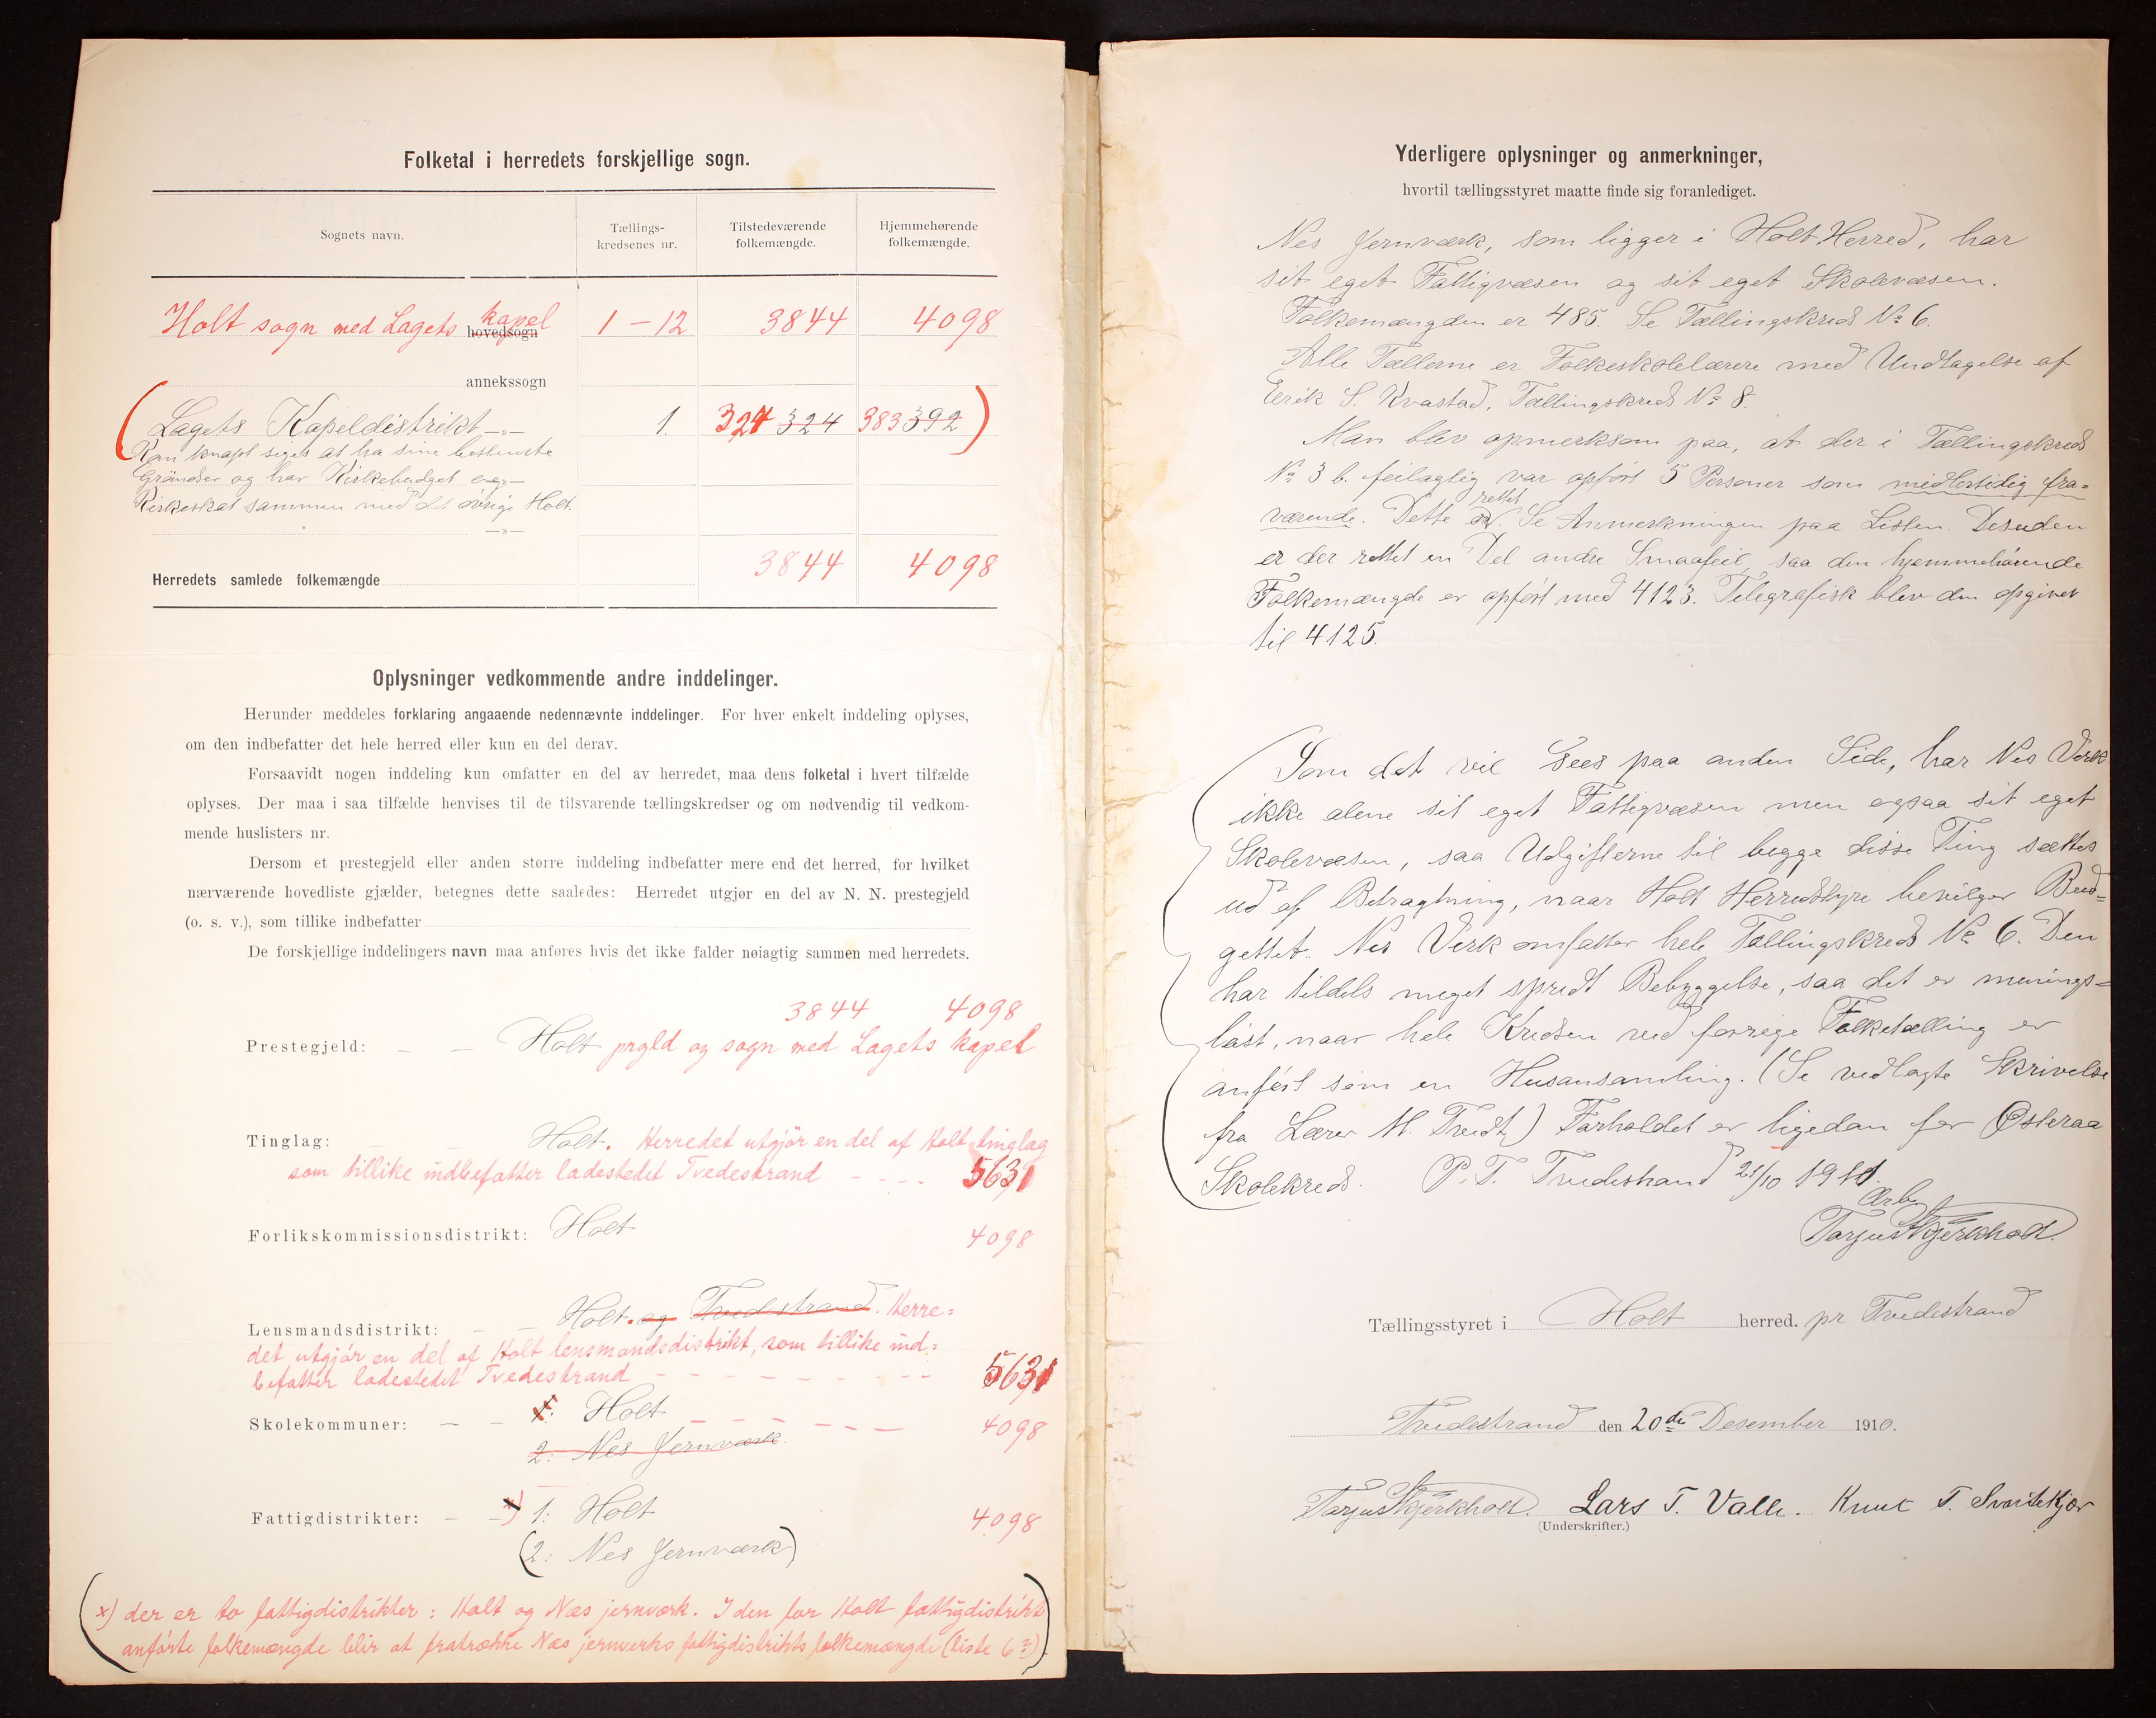 Folketal i herredets forskjellige sogn.
Sognets navn.
Tællings-
kredsenes nr.
Tilstedeværende
folkemængde.
Hjemmehørende
folkemængde.
Holt sogn med Lagets kapel hovedsogn 1-12 3844 4098
annekssogn
(Lagets Kapeldistrikt -»- 1. 324 324 383 392)
Kan knapt siges at ha sine bestemte
Grændser og har Kirkebudget og
Kirkeskat sammen med det øvrige Holt.
-»-
Herredets samlede folkemængde 3844 4098
Oplysninger vedkommende andre inddelinger.
Herunder meddeles forklaring angaaende nedennævnte inddelinger. For hver enkelt inddeling oplyses,
om den indbefatter det hele herred eller kun en del derav.
Forsaavidt nogen inddeling kun omfatter en del av herredet, maa dens folketal i hvert tilfælde
oplyses. Der maa i saa tilfælde henvises til de tilsvarende tællingskredser og om nødvendig til vedkom-
mende huslisters nr.
Dersom et prestegjeld eller anden større inddeling indbefatter mere end det herred, for hvilket
nærværende hovedliste gjælder, betegnes dette saaledes: Herredet utgjør en del av N. N. prestegjeld
(o. s. v.), som tillike indbefatter
De forskjellige inddelingers navn maa anføres hvis det ikke falder nøiagtig sammen med herredets.
3844 4098
Prestegjeld: - - Holt prgld og sogn med Lagets kapel
Tinglag: - - Holt. Herredet utgjør en del af Holt tinglag
som tillike indbefatter ladestedet Tvedestrand - - - - 5631
Forlikskommissionsdistrikt: Holt 4098
Lensmandsdistrikt: - - Holt. og Tvedestrand. Herre=
det utgjør en del af Holt lensmandsdistrikt, som tillike ind=
befatter ladestedet Tvedestrand - - - - - - - - - 5631
Skolekommuner: - - 1: Holt - - - - - - 4098
2: Nes Jernværk.
Fattigdistrikter: - - x) 1: Holt 4098
(2: Nes Jernværk)
(x) der er to fattigdistrikter: Holt og Næs jernverk. I den for Holt fattigdistrikt
anførte folkemængde blir at fratrække Næs jernverks fattigdistrikts folkemængde (liste 6)
Yderligere oplysninger og anmerkninger,
hvortil tællingsstyret maatte finde sig foranlediget.
Nes Jernværk, som ligger i Holt Herred, har
sit eget Fattigvæsen og sit eget Skolevæsen.
Folkemængden er 485. Se Tællingskreds No 6.
Alle Tællerne er Folkeskolelærere med Undtagelse af
Eerik S. Kvastad, Tællingskreds No 8.
Man blev opmerksom paa, at der i Tællingskreds
No 3 b. feilagtig var opført 5 Personer som midlertidig fra=
værende. Dette er rettet. Se Anmerkningen paa Listen. Desuden
er der rettet en Del andre Smaafeil, saa den hjemmehørende
Folkemængde er opført med 4123. Telegrafisk blev den opgivet
til 4125.
Som det vil sees paa anden Side, har Nes Verk
ikke alene sit eget Fattigvæsen men ogsaa sit eget
Skolevæsen, saa Udgifterne til begge disse Ting sættes
ud af Betragtning, naar Holt Herredstyre bevilger Bud=
gettet. Nes Verk omfatter hele Tællingskreds No 6. Den
har tildels meget spredt Bebyggelse, saa det er menings=
løst, naar hele Kredsen ved forrige Folketælling er
anført som en Husansamling. (Se vedlagte Skrivelse
fra Lærer M. Tveidt) Forholdet er ligedan for Østeraa
Skolekreds. P. T. Tvedestrand 21/10 1911.
Ærb.
Tarjus Skjerkholt.
Tællingsstyret i Holt herred. pr Tvedestrand
Tvedestrand den 20de Desember 1910.
Tarjus Skjerkholt. Lars T. Valle. Knut T. Svartekjær
(Underskrifter.)